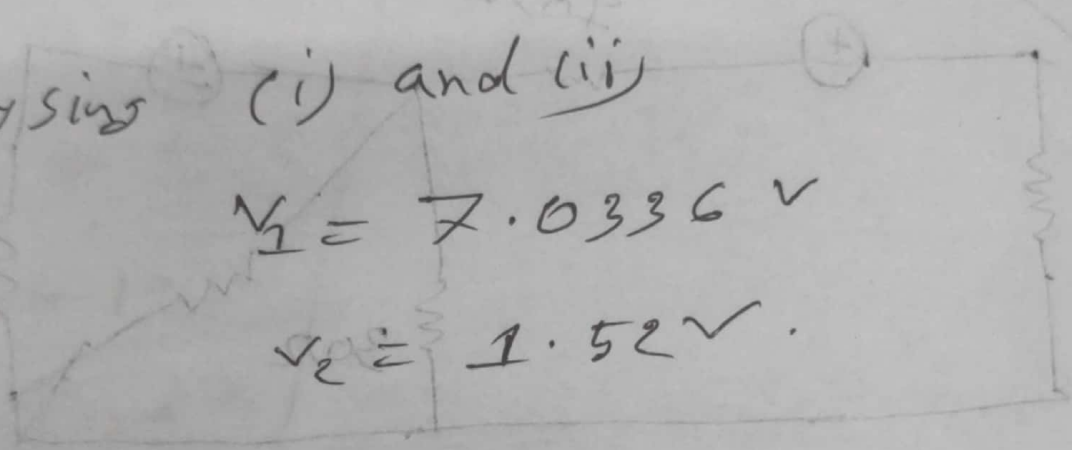 using (i) and (ii)
V1 = 7.0336 V
V2 = 1.52 V.